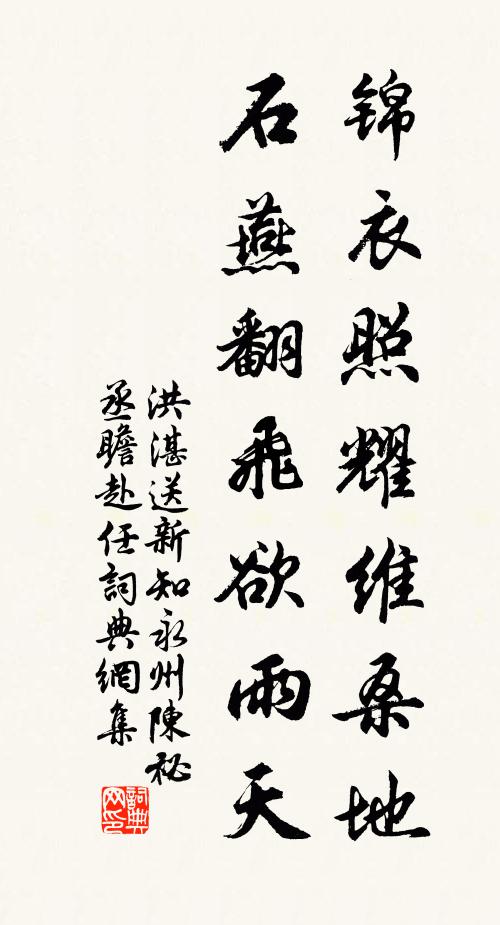 锦衣照耀維桑地
石燕翻飛欲雨天
洪湛送新知永州陳祕
丞瞻赴任詞典網集
詞典网印